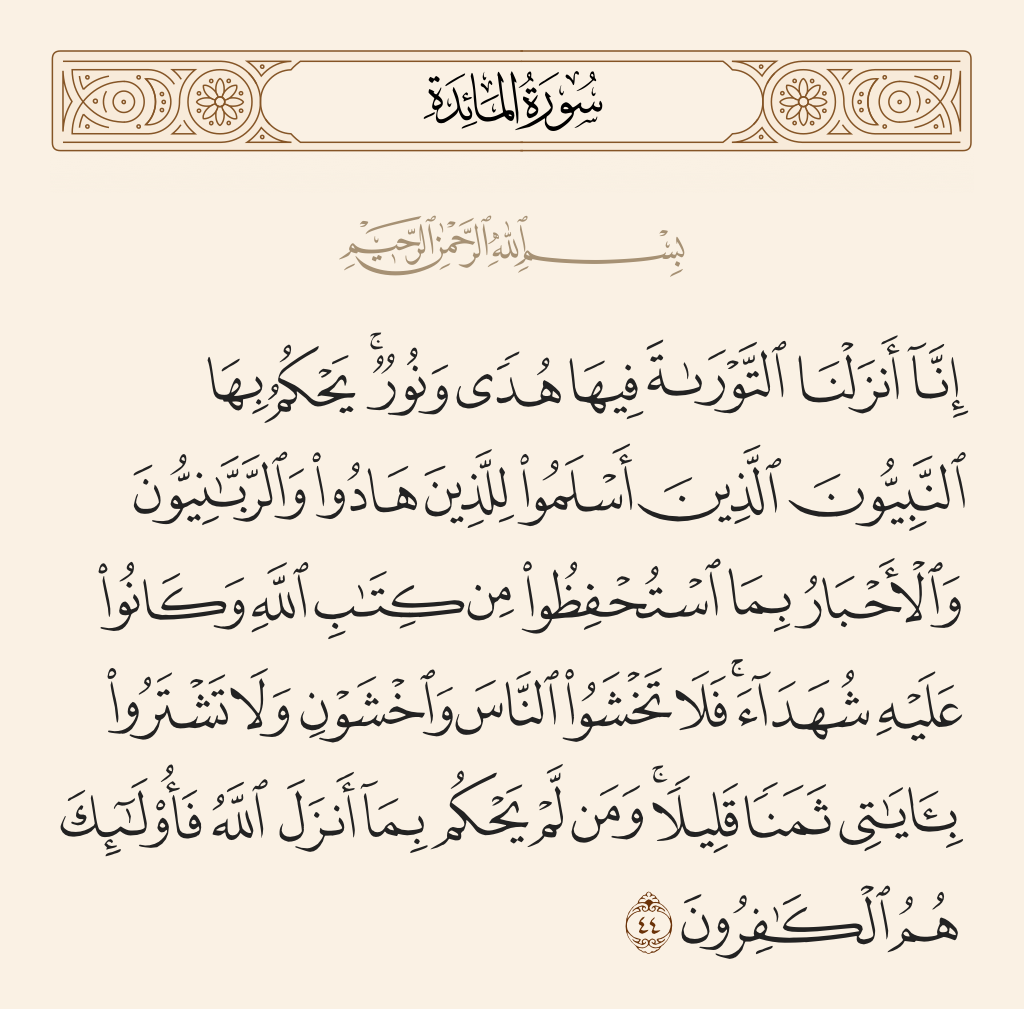 سُورَةُ المَائِدَةِ
بِسْمِ ٱللَّهِ ٱلرَّحْمَٰنِ ٱلرَّحِيمِ
إِنَّآ أَنزَلْنَا ٱلتَّوْرَىٰةَ فِيهَا هُدًى وَنُورٌ ۚ يَحْكُمُ بِهَا
ٱلنَّبِيُّونَ ٱلَّذِينَ أَسْلَمُوا۟ لِلَّذِينَ هَادُوا۟ وَٱلرَّبَّـٰنِيُّونَ
وَٱلْأَحْبَارُ بِمَا ٱسْتُحْفِظُوا۟ مِن كِتَـٰبِ ٱللَّهِ وَكَانُوا۟
عَلَيْهِ شُهَدَآءَ ۚ فَلَا تَخْشَوُا۟ ٱلنَّاسَ وَٱخْشَوْنِ وَلَا تَشْتَرُوا۟
بِـَٔايَـٰتِى ثَمَنًا قَلِيلًا ۚ وَمَن لَّمْ يَحْكُم بِمَآ أَنزَلَ ٱللَّهُ فَأُو۟لَـٰٓئِكَ
هُمُ ٱلْكَـٰفِرُونَ ٤٤